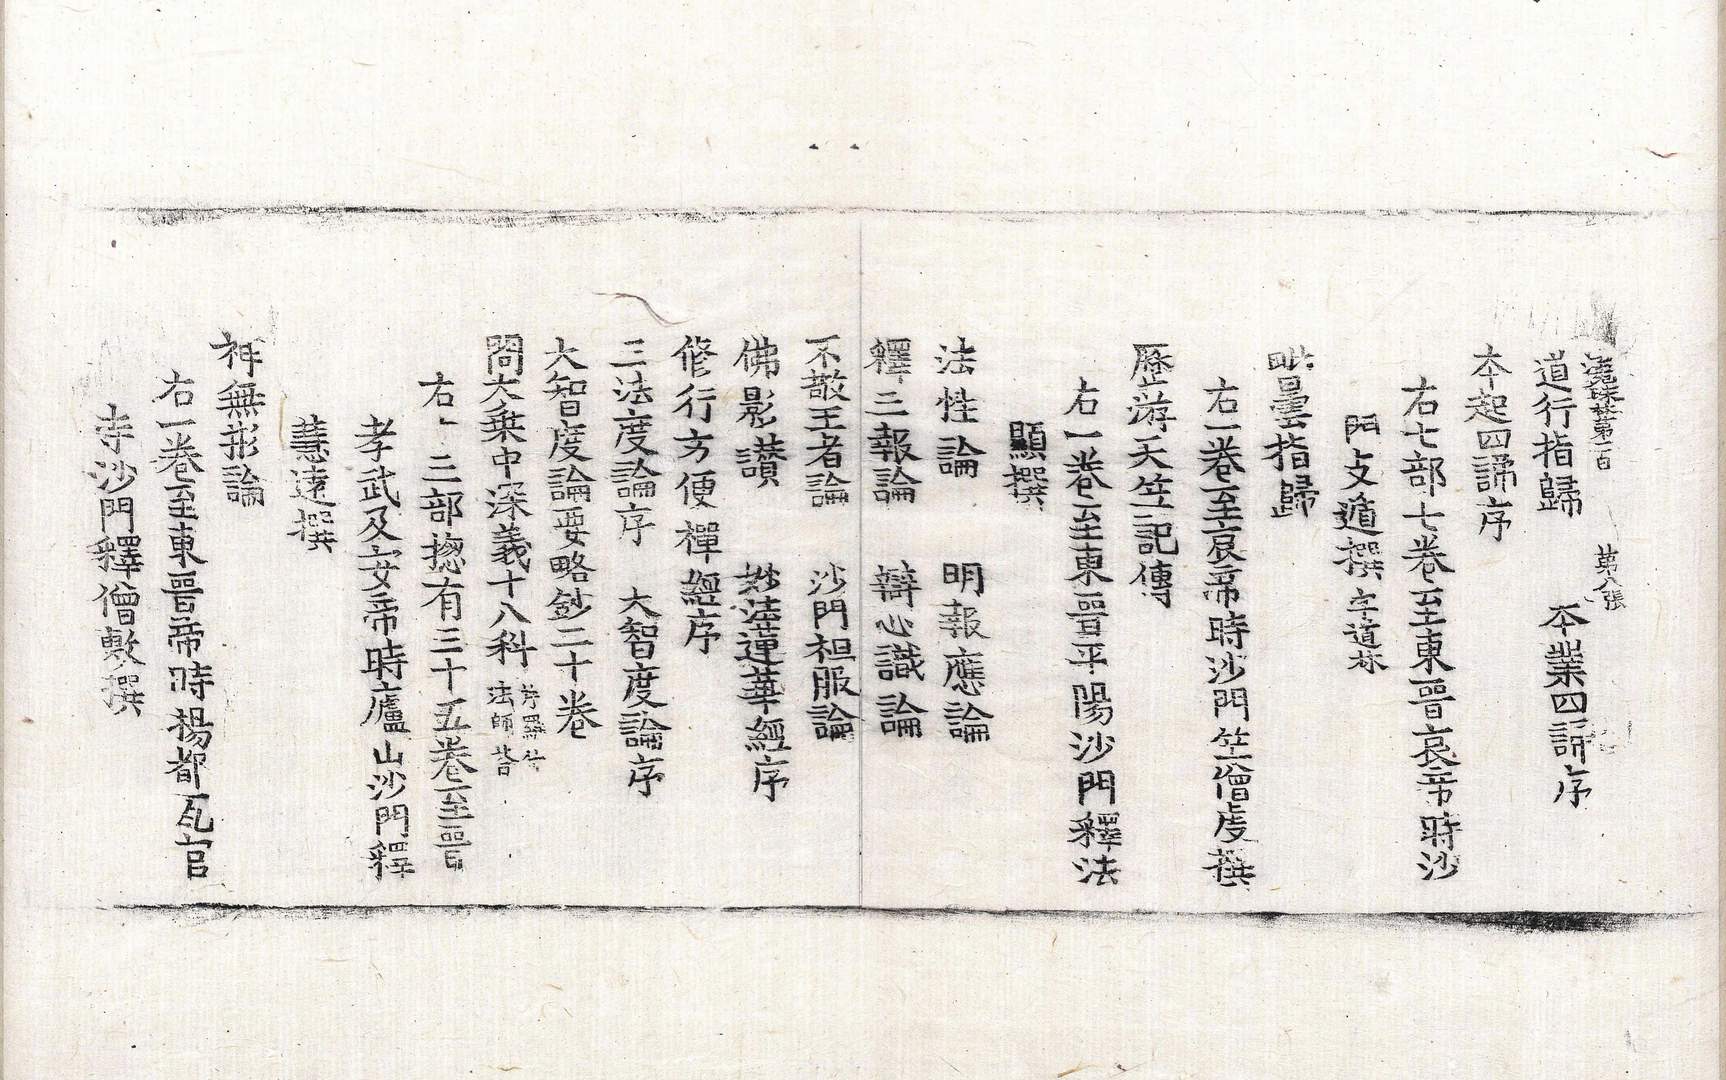 法苑珠林第一百 第八張
道行指歸 本業四諦序
本起四諦序
右七部七卷至東晉哀帝時沙
門支遁撰字道林
毗曇指歸
右一卷至哀帝時沙門竺僧虔撰
歷游天竺記傳
右一卷至東晉平陽沙門釋法
顯撰
法性論 明報應論
釋三報論 辯心識論
不敬王者論 沙門袒服論
佛影讚 妙法蓮華經序
修行方便禪經序
三法度論序 大智度論序
大智度論要略鈔二十卷
問大乘中深義十八科
法師答
右 三部揔有三十五卷至晉
孝武及安帝時廬山沙門釋
慧遠撰
神無形論
右一卷至東晉帝時揚都瓦官
寺沙門釋僧敷撰